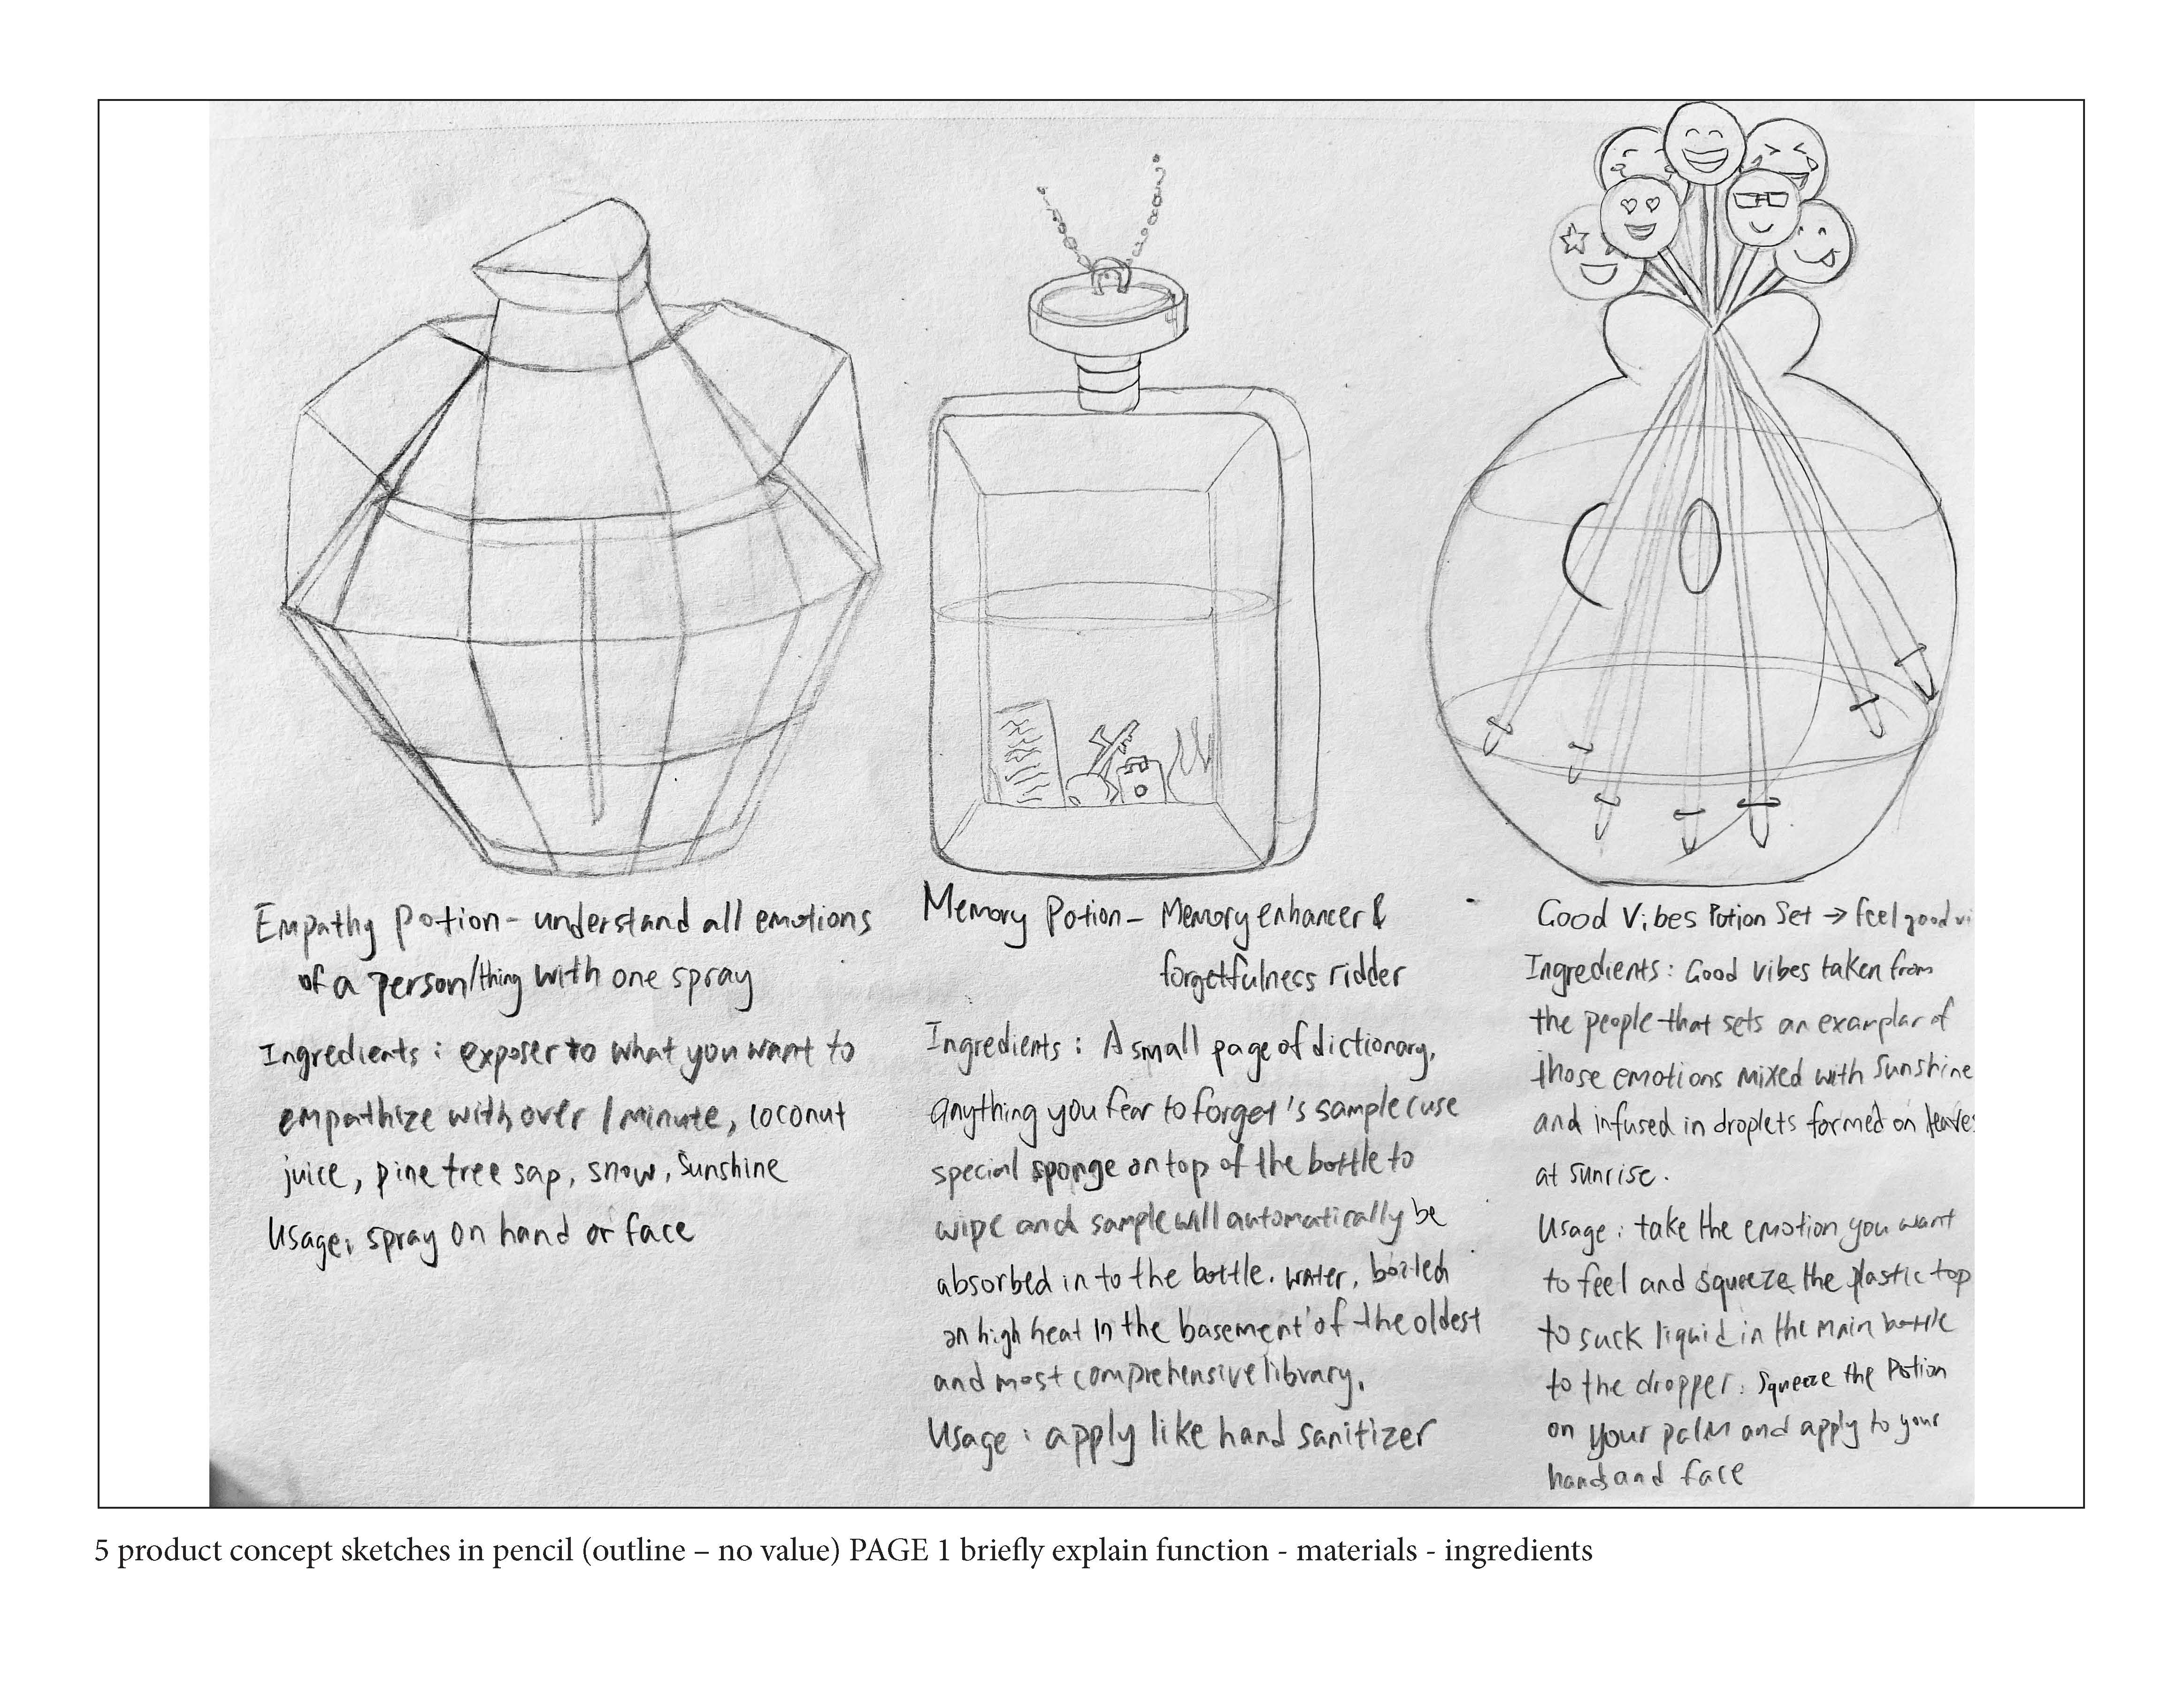 Empathy Potion - understand all emotions
of a person/thing with one spray
Ingredients : exposer to what you want to
empathize with over 1 minute, coconut
juice, pine tree sap, snow, sunshine
Usage: spray on hand or face
Memory Potion - Memory enhancer &
forgetfulness ridder
Ingredients : A small page of dictionary,
anything you fear to forget's sample (use
special sponge on top of the bottle to
wipe and sample will automatically be
absorbed in to the bottle. water, boiled
on high heat in the basement of the oldest
and most comprehensive library.
Usage : apply like hand sanitizer
Good Vibes Potion Set → feel good vi
Ingredients : Good vibes taken from
the people that sets an examplar of
those emotions mixed with sunshine
and infused in droplets formed on leaves
at sunrise.
Usage : take the emotion you want
to feel and squeeze the plastic top
to suck liquid in the main bottle
to the dropper. squeeze the Potion
on your palm and apply to your
hands and face
5 product concept sketches in pencil (outline – no value) PAGE 1 briefly explain function - materials - ingredients